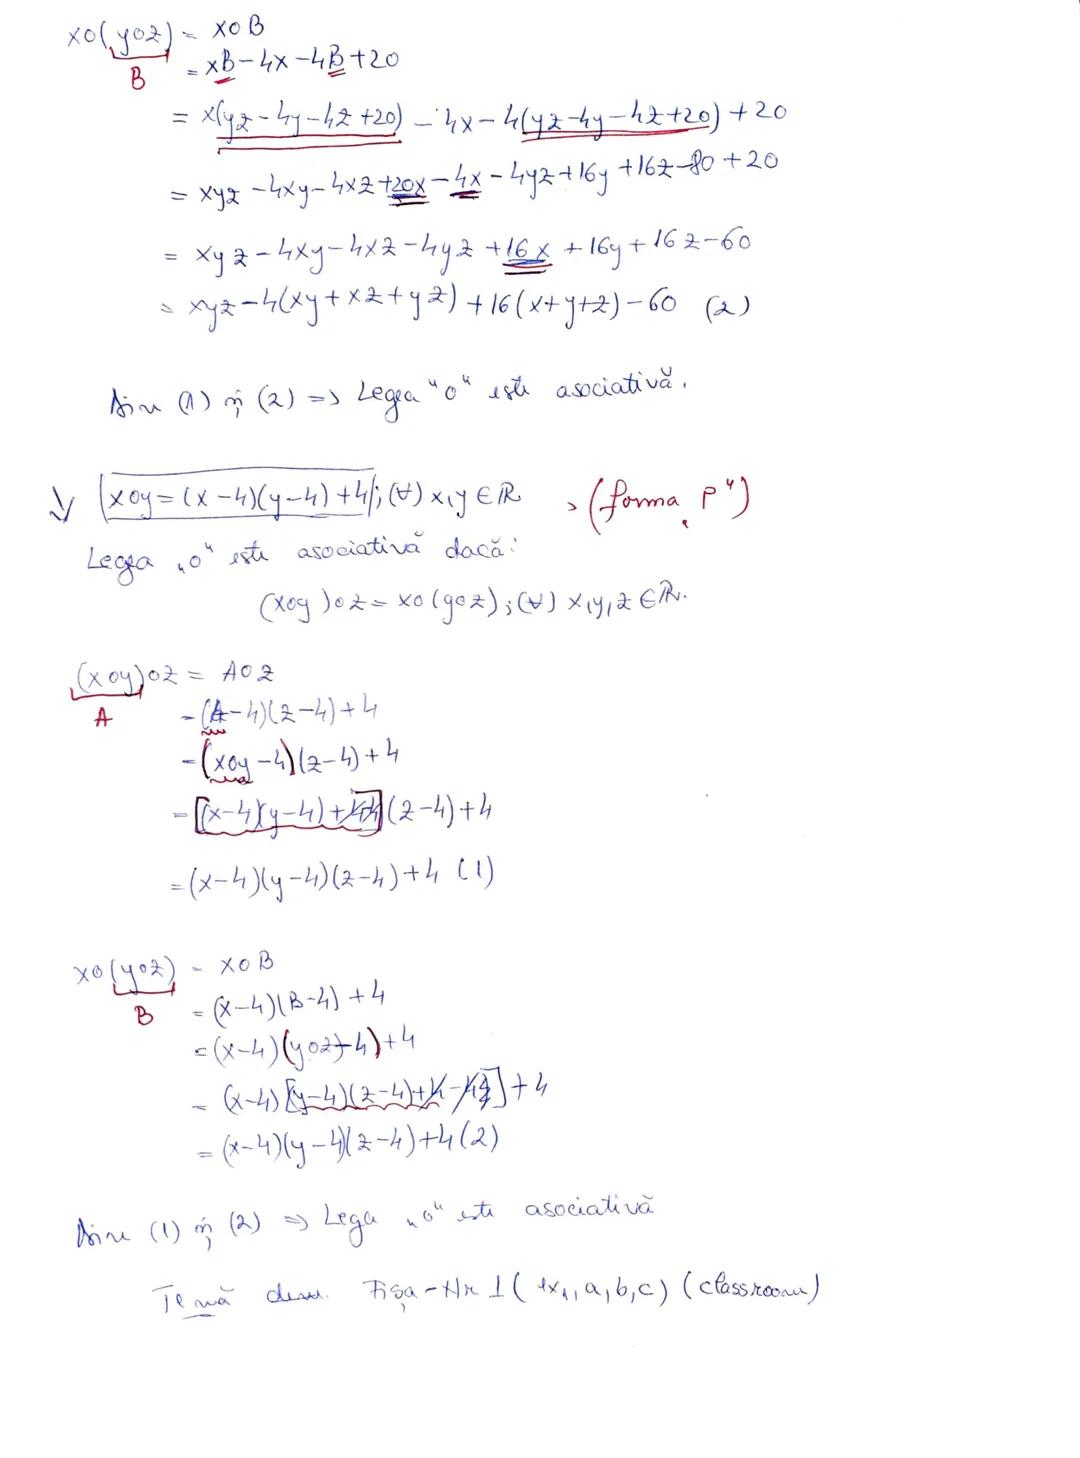 x∘(y∘z) = x∘B
B
= xB-4x-4B+20
= x(yz-4y-4z+20) - 4x-4(yz-4y-4z+20)+20
= xyz-4xy-4xz+20x-4x-4yz+16y+16z-80+20
= xyz-4xy-4xz-4yz+16x+16y+16z-60
= xyz-4(xy+xz+yz)+16(x+y+z)-60 (2)
Din (1) și (2) => Legea "o" este asociativă.
x∘y=(x-4)(y-4)+4; (∀) x,y∈ℝ (forma „P")
Legea „o" este asociativă dacă:
(x∘y)∘z = x∘(y∘z); (∀) x,y,z∈ℝ.
(x∘y)∘z = A∘z
A
=(A-4)(z-4)+4
=(x∘y-4)(z-4)+4
=[(x-4)(y-4)+4-4](z-4)+4
=(x-4)(y-4)(z-4)+4 (1)
x∘(y∘z) = x∘B
B
=(x-4)(B-4)+4
=(x-4)(y∘z-4)+4
=(x-4)[(y-4)(z-4)+4-4]+4
=(x-4)(y-4)(z-4)+4 (2)
Din (1) și (2) => Legea „o" este asociativă
Temă Fișa-Nr 1 (ex1, a,b,c) (classroom)